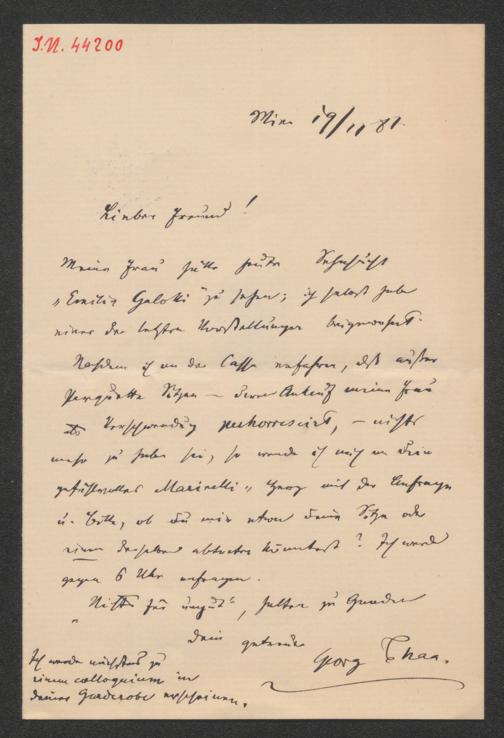 J.N. 44200
Wien 19/11 81.
Lieber Freund!
Meine Frau hätte heute Sehnsucht
"Emilia Galotti" zu sehen; ich selbst habe
einer der letzten Vorstellungen beigewohnt.
Nachdem ich an der Cassa erfahren, daß außer
Parquette Sitzen – deren Ankauf meine Frau
als Verschwendung perhorrescirt, – nichts
mehr zu haben sei, so wende ich mich an Dein
gefühlvolles Marinelli-Herz mit der Anfrage
u. Bitte, ob Du mir etwa Deine Sitze oder
einen derselben abtreten könntest? Ich werde
gegen 6 Uhr anfragen.
"Nichts für ungut", halten zu Gnaden
Dein getreuer
Georg Thaa.
Ich werde nächstens zu
einem colloquium in
Deiner Garderobe erscheinen.